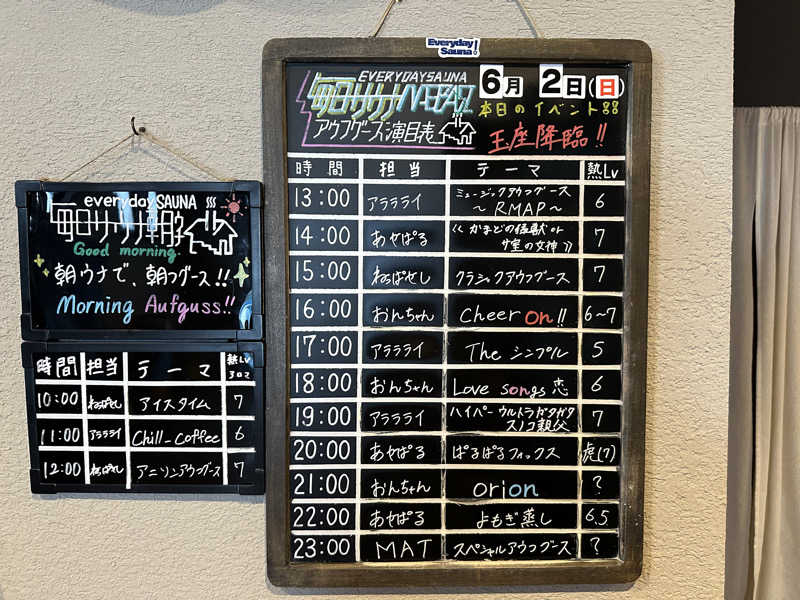 everyday SAUNA
Good morning.
朝ウナで、朝つグース!!
Morning Aufguss!!
時間 担当 テーマ 熱Lv アロマ
10:00 ねっぱせし アイスタイム 7
11:00 アララライ Chill-coffee 6
12:00 ねっぱせし アニソンアウフグース 7
Everyday Sauna!
EVERYDAYSAUNA
アウフグース演目表
6月 2日(日)
本日のイベント
玉座降臨!!
時間 担当 テーマ 熱Lv
13:00 アララライ ミュージックアウフグース 6
~RMAP~
14:00 あせぱる 《かまどの or 7
サ室の女神》
15:00 ねっぱせし クラシックアウフグース 7
16:00 おんちゃん Cheer on!! 6~7
17:00 アララライ The シンプル 5
18:00 おんちゃん Love songs 恋 6
19:00 アララライ ハイパーウルトラガタガタ 7
スノコ親父
20:00 あせぱる ぱるぱるフォックス 虎(7)
21:00 おんちゃん orion ?
22:00 あせぱる よもぎ蒸し 6.5
23:00 MAT スペシャルアウフグース ?